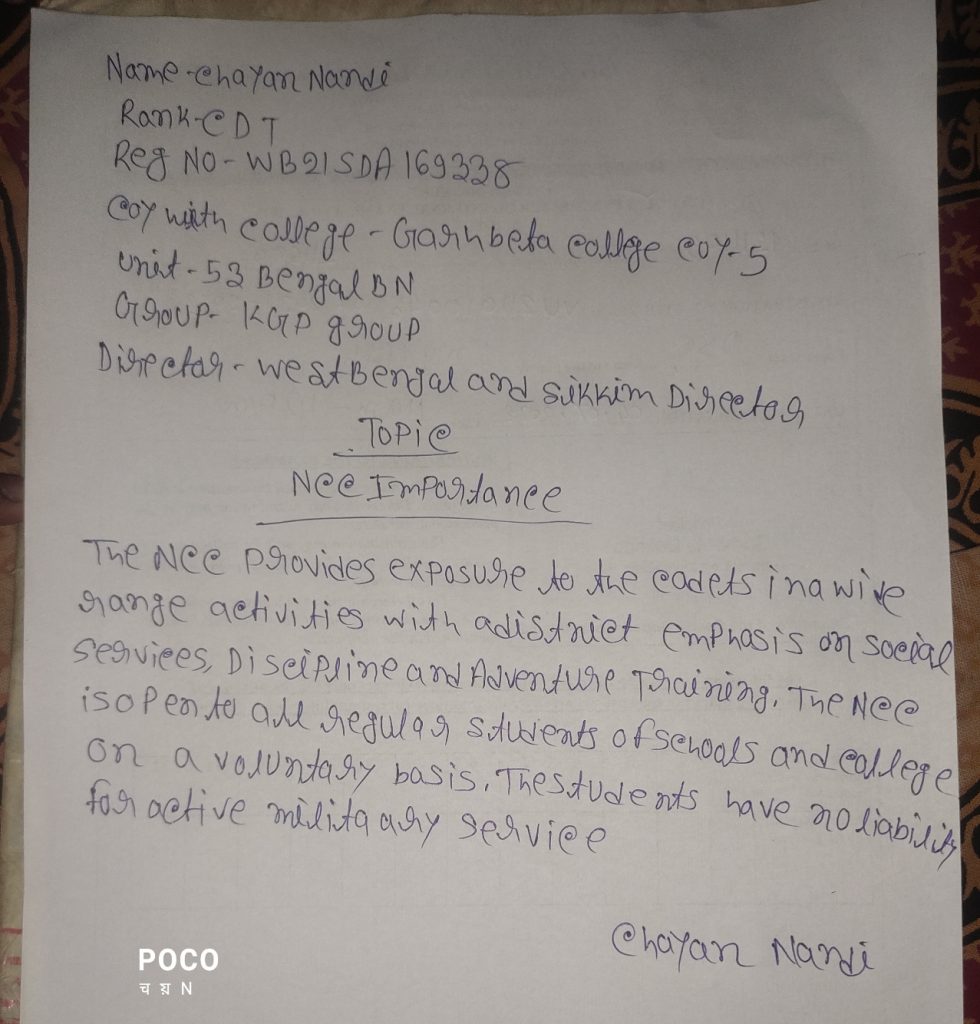 Name-Chayan Nandi
Rank-CDT
Reg NO-WB21SDA169338
COY with college-Garhbeta callge COY-5
Unit-53 Bengal BN
Group- KGP group
Director-West Bengal and Sikkim Director
Topic
NCC Importance
The NCC Provides exposure to the cadets in a wide
range activities with a district emphasis on social
services, Discipline and Adventure Training. The NCC
is open to all regular students of schools and callege
on a voluntary basis. The students have no liability
for active militaary service
Chayan Nandi
POCO
चय़ N